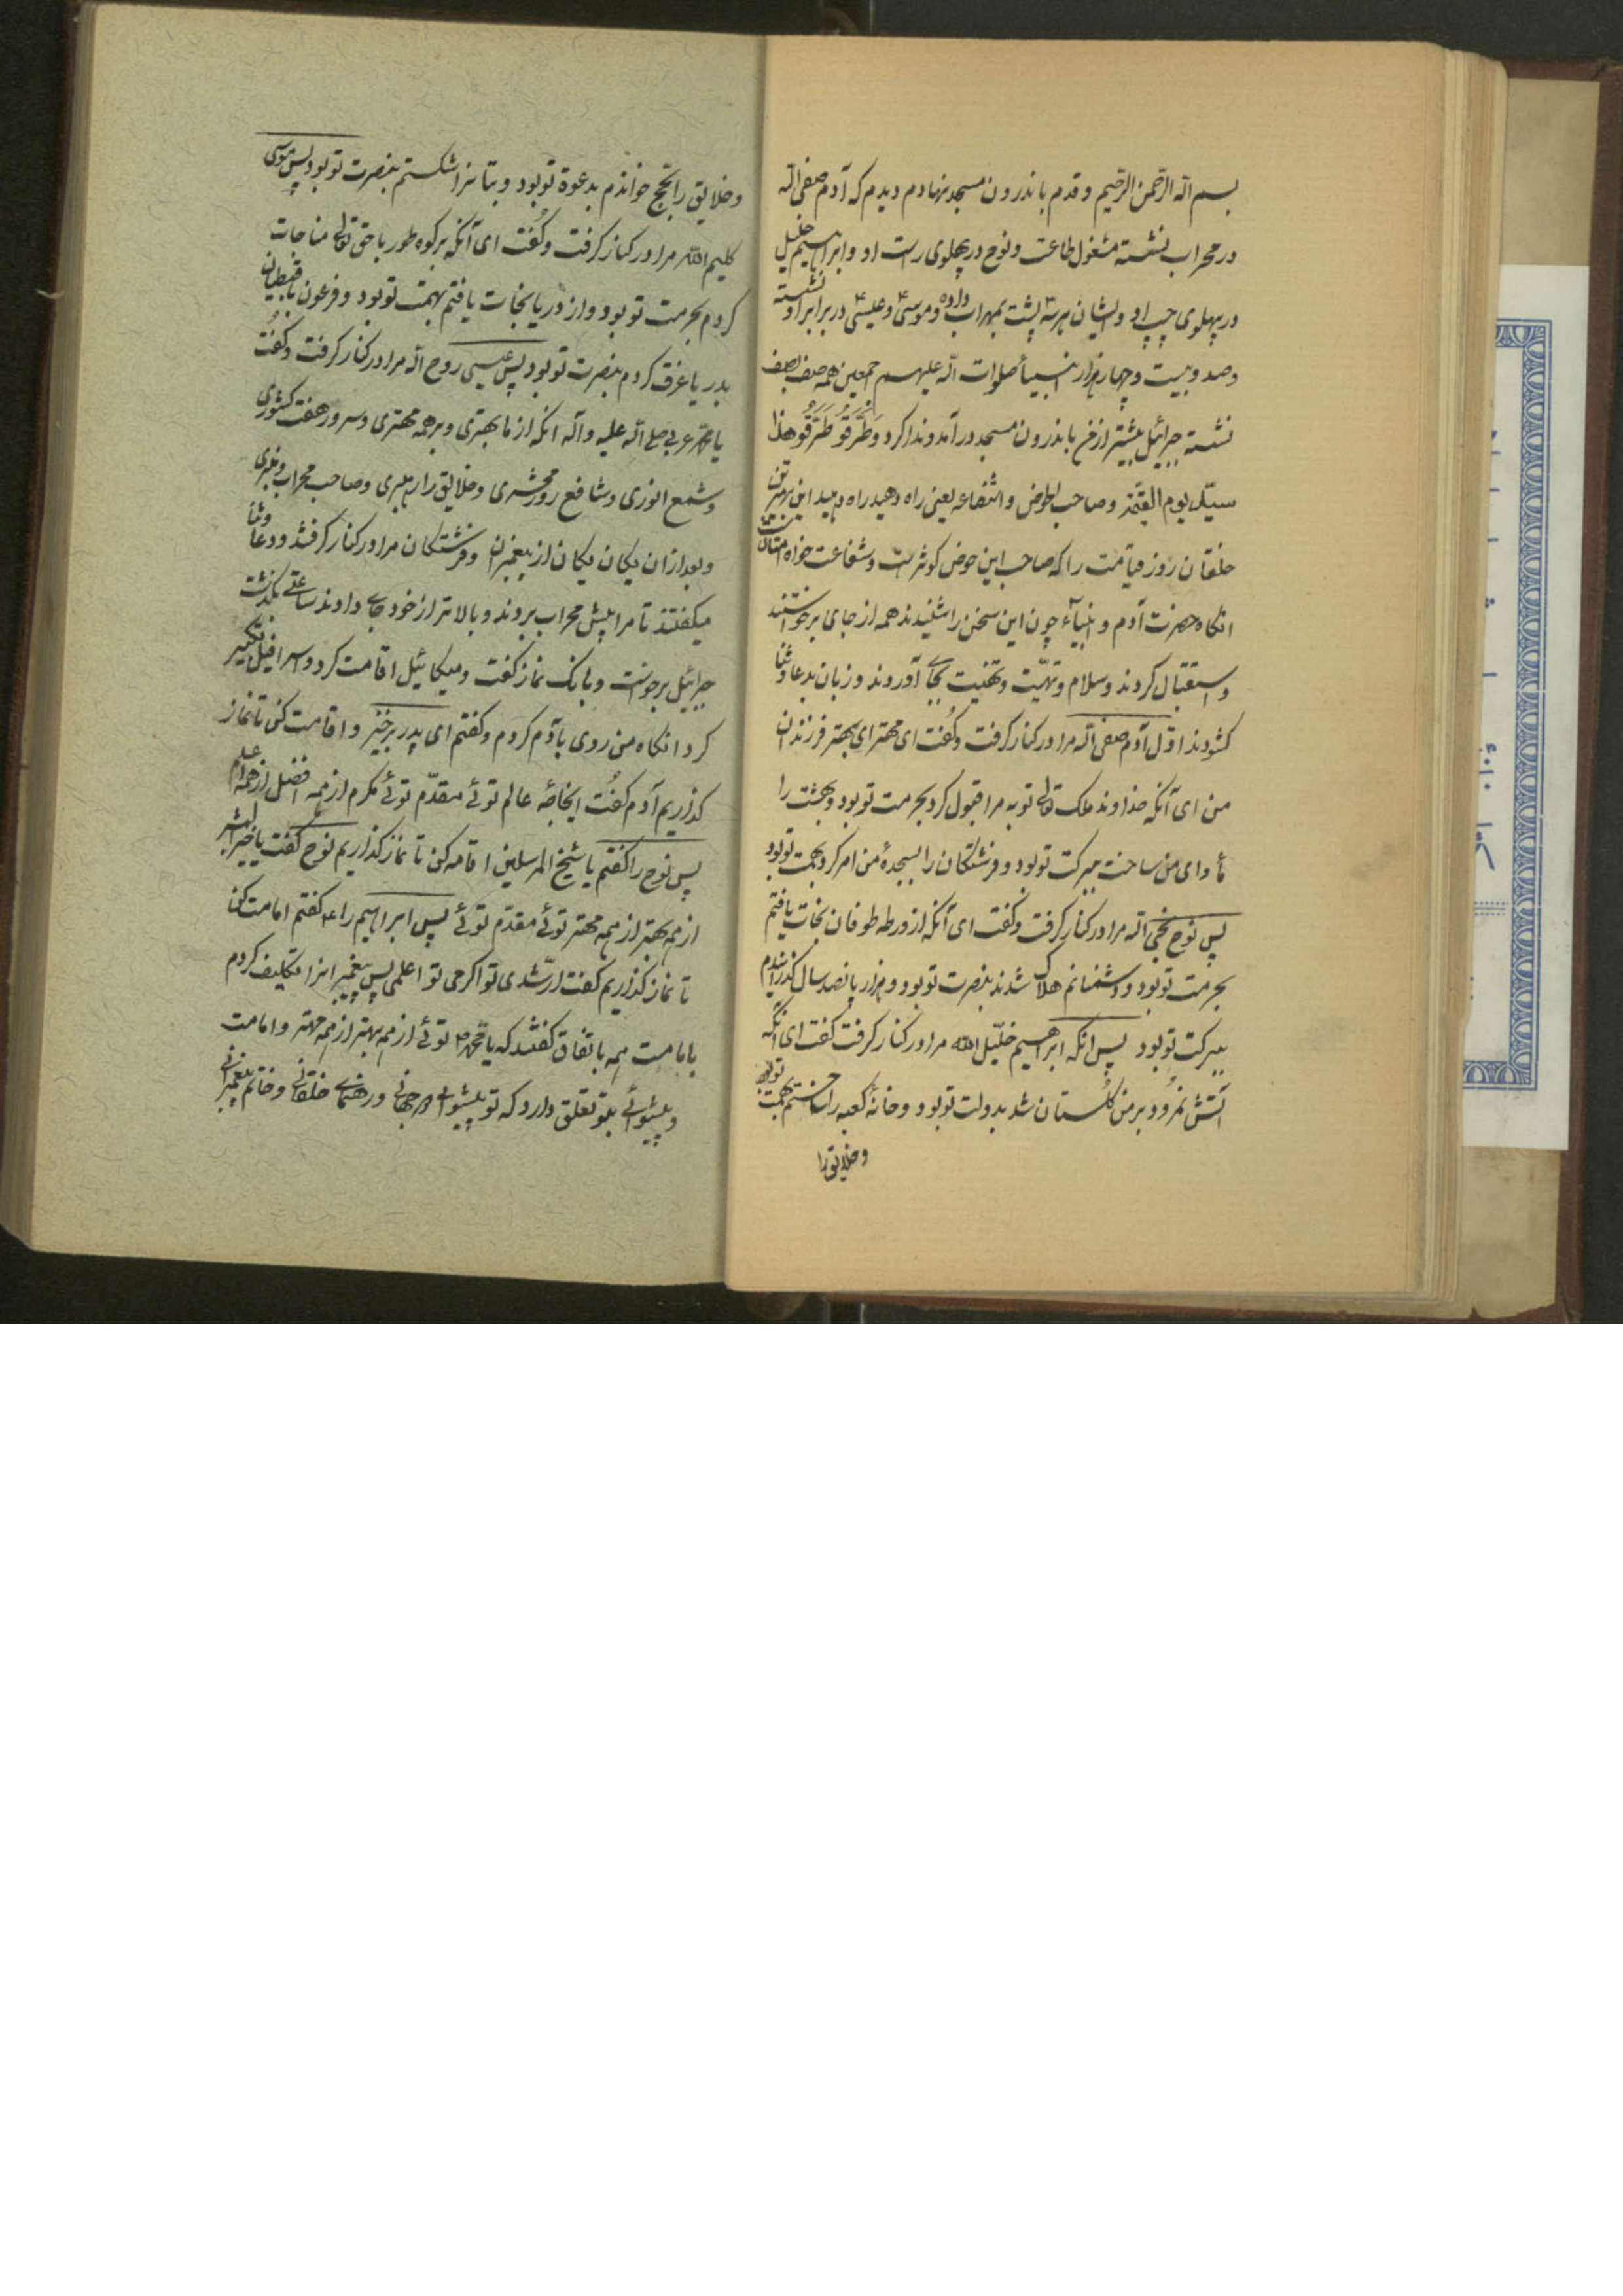 بسم الله الرحمن الرحیم و قدم باندرون مسجد نهادم دیدم که آدم صفی الله
در محراب نشسته مشغول طاعت و نوح در پهلوی راست او و ابراهیم خلیل
در پهلوی چپ او و ایشان هر سه پشت بمهراب داده و موسی ع و عیسی ع در برابر او نشسته
و صد و بیست و چهار هزار انبیا صلوات الله علیهم اجمعین همه صف بصف
نشسته جبرائیل پیشتر از من باندرون مسجد درآمد و ندا کرد و طَرِّقُو طَرِّقُو هذا
سیّد یوم القیٰمة و صاحب الحوض و الشفاعه یعنی راه دهید راه دهید این بهترین
خلقان روز قیامت را که صاحب این حوض کوثر است و شفاعت خواه امتان است
انکاه حضرت آدم و انبیآء چون این سخن را شنیدند همه از جای برخواستند
و استقبال کردند و سلام و تهیّت و تهنیت بجای آوردند و زبان بدعا و ثنا
کشودند اوّل آدم صفی الله مرا در کنار کرفت و کُفت ای مهتر ای بهتر فرزندان
من ای آنکه خداوند ملک تعالی توبه مرا قبول کرد بحرمت تو بود و بهشت را
مأوای من ساخت ببرکت تو بود و فرشتکان را بسجدهٔ من امر کرد بجهت تو بود
پس نوح نجی الله مرا در کنار کرفت و کفت ای آنکه از ورطه طوفان نجات یافتم
بحرمت تو بود و دشمنانم هلاک شدند بنصرت تو بود و هزار پانصد سال کذرانیدم
ببرکت تو بود پس انکه ابراهیم خلیل الله مرا در کنار کرفت کفت ای انکه
آتش نمرود بر من کلستان شد بدولت تو بود و خانهٔ کعبه را ساختم بهمت تو بود
و خلایق را
و خلایق را بحج خواندم بدعوة تو بود و بتانرا شکستم بنصرت تو بود پس موسی
کلیم الله مرا در کنار کرفت و کُفت ای آنکه بر کوه طور با حق تعالی مناجات
کردم بحرمت تو بود و از دریا نجات یافتم بهمت تو بود و فرعون با قبطیان
بدریا غرق کردم بنصرت تو بود پس عیسی روح الله مرا در کنار کرفت و کُفت
یا محمد عربی صلی الله علیه و آله انکه از ما بهتری و بر همه مهتری و سرور هفت کشوری
و شمع انوری و شافع روز محشری و خلایق را رهبری و صاحب محراب و منبری
و بعد از ان یکان یکان از پیغمبران و فرشتکان مرا در کنار کرفتند و دعا و ثنا
میکفتند تا مرا پیش محراب بردند و بالاتر از خود جای دادند ساعتی بکذشت
جبرائیل برخواست و بانک نماز کفت و میکائیل اقامت کرد و اسرافیل تکبیر
کرد انکاه من روی بآدم کردم و کفتم ای پدر برخیز و اقامت کن تا نماز
کذاریم آدم کفُت ایخاصّه عالم توئی مقدّم توئی مکرم از همه افضل از همه اعلم
پس نوح را کفتم یا شیخ المرسلین اقامه کن تا نماز کذاریم نوح کفت یا خیر البشر
از همه بهتر از همه مهتر توئی مقدّم توئی پس ابراهیم را ع کفتم امامت کن
تا نماز کذاریم کفت ارشدی تو اکرمی تو اعلمی پس پیغمبرانرا تکلیف کردم
بامامت همه باتفاق کفتند که یا محمد ص توئی از همه بهتر از همه مهتر و امامت
و پیشوائی بتو تعلق دارد که تو پیشوای جهانی و رهنمای خلقانی و خاتم پیغمبرانی